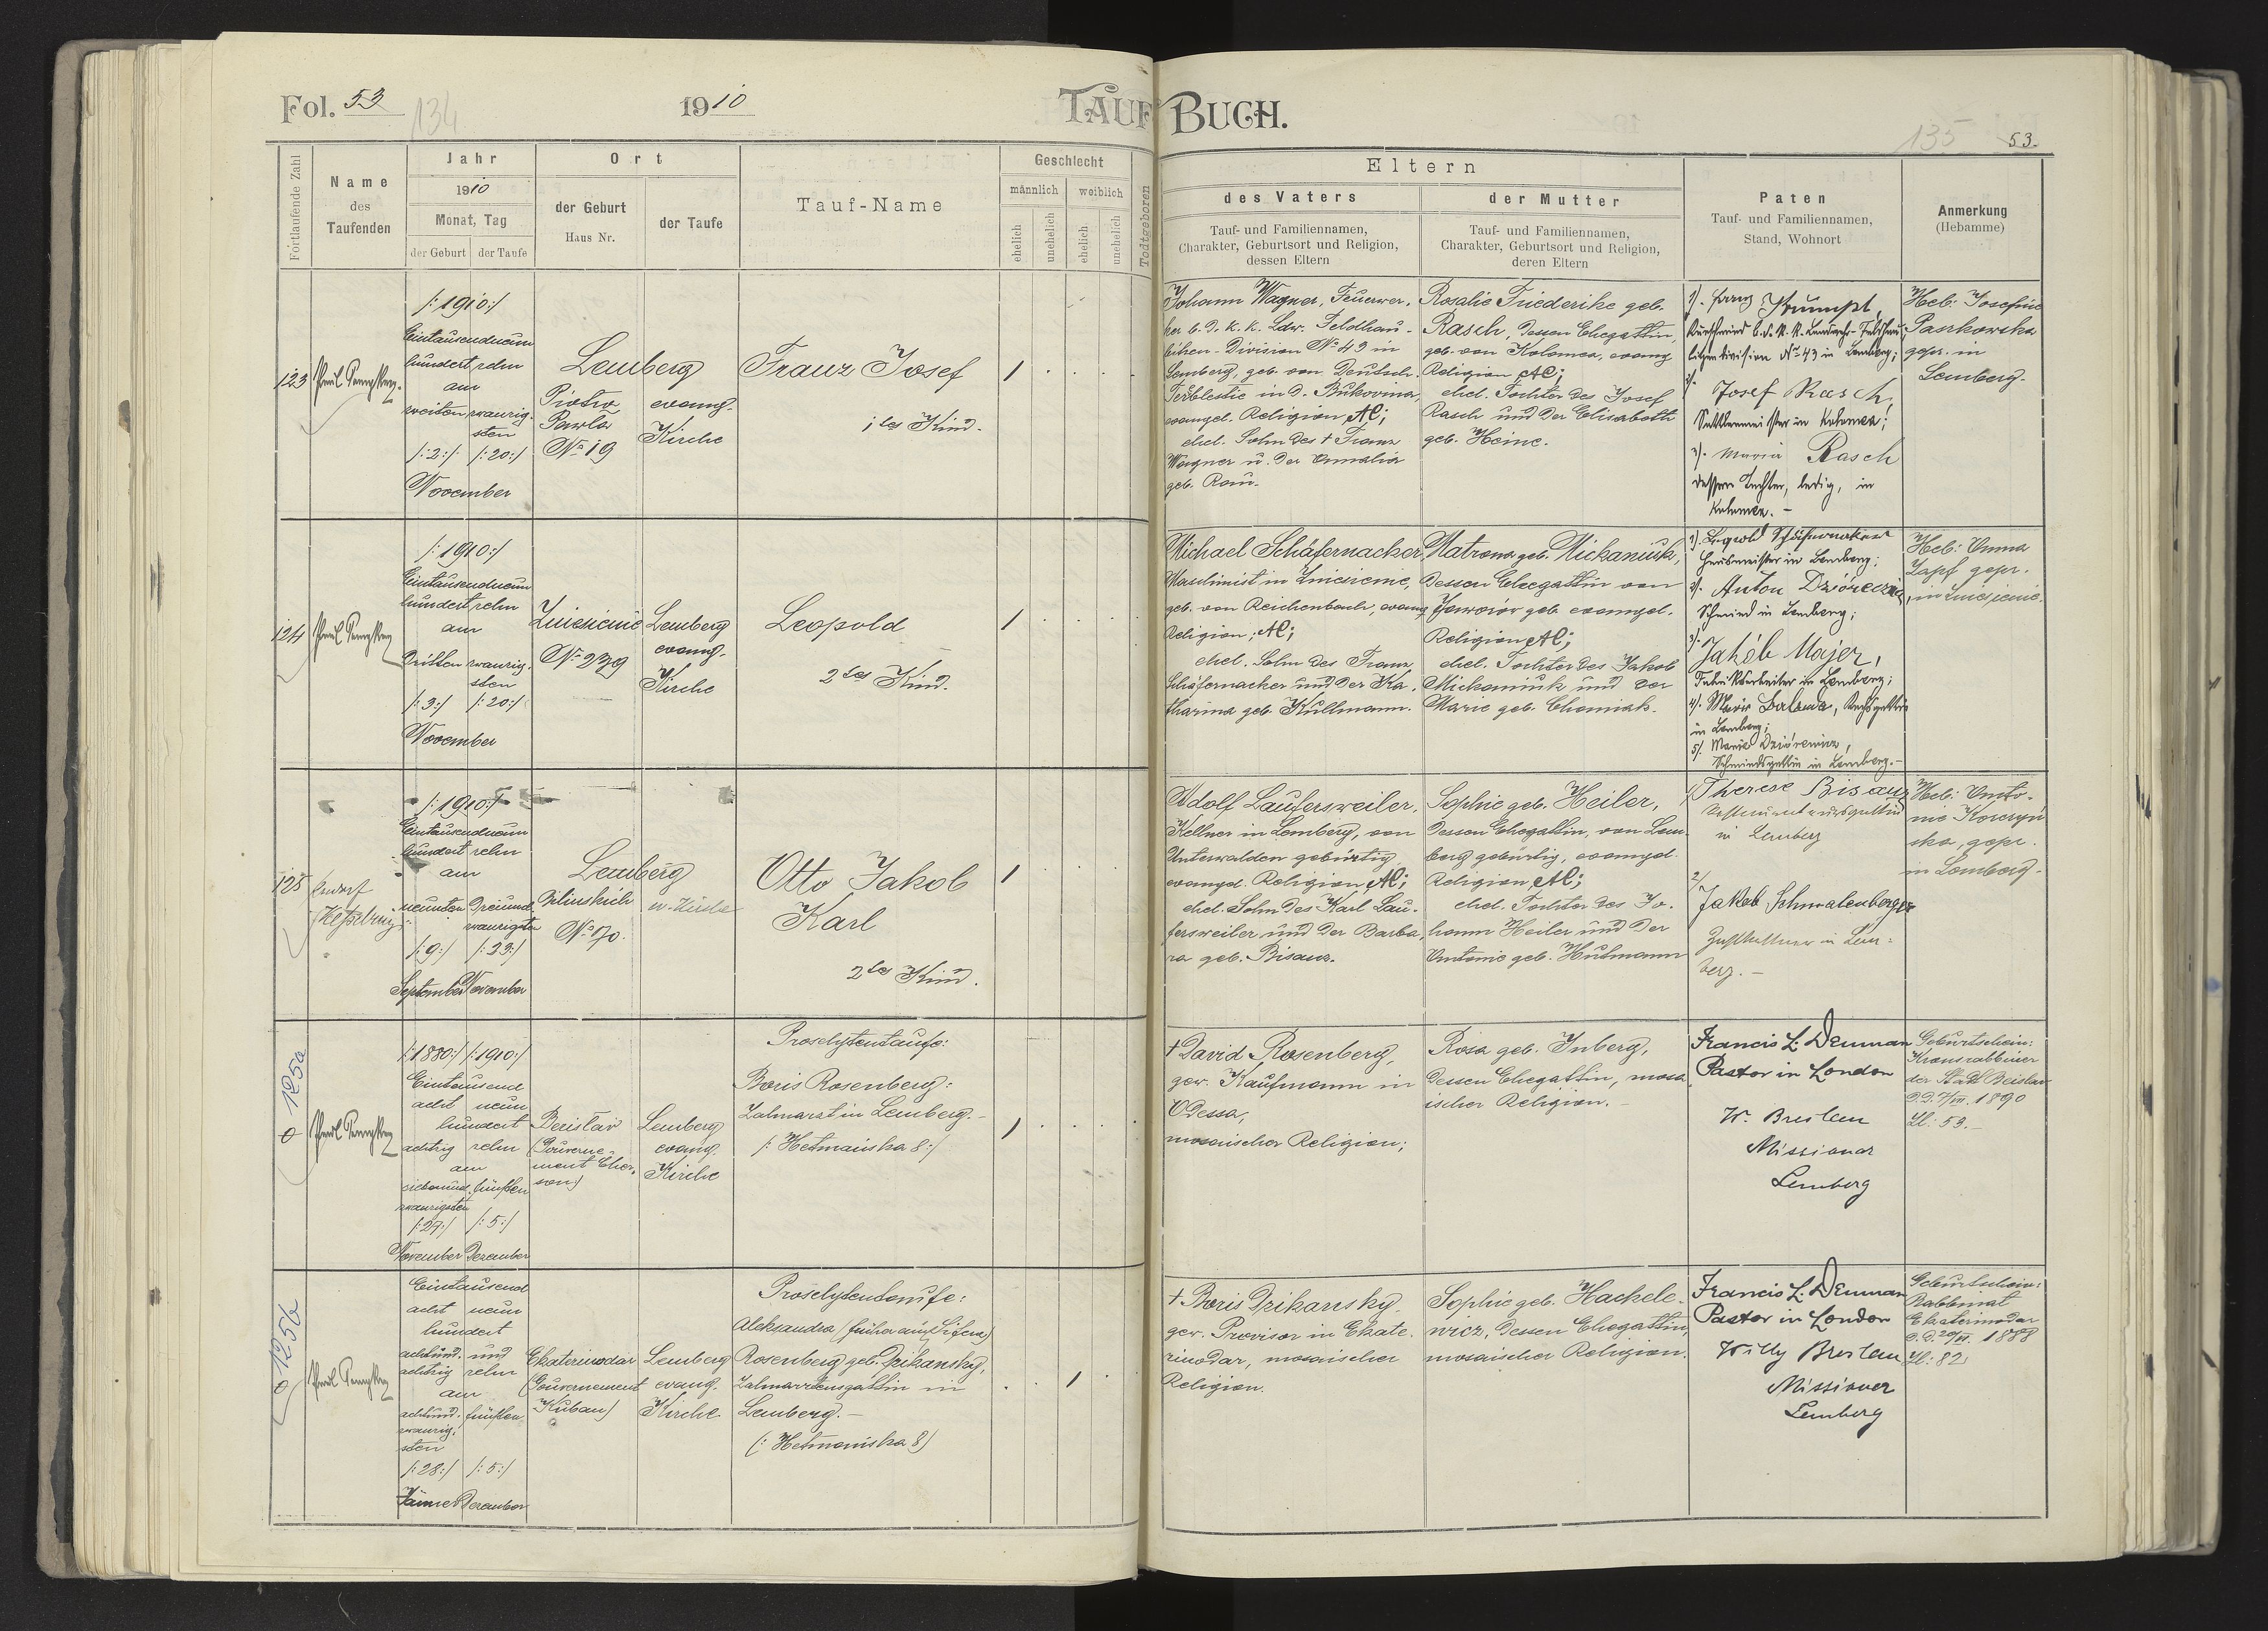 Fol. 53
134
1910
TAUF BUCH.
135
53.
Fortlaufende Zahl
Name
des
Taufenden
Jahr
1910
Monat, Tag
der Geburt
der Taufe
Ort
der Geburt
Haus Nr.
der Taufe
Tauf-Name
Geschlecht
männlich
weiblich
ehelich
unehelich
ehelich
unehelich
Todtgeboren
Eltern
des Vaters
Tauf- und Familiennamen,
Charakter, Geburtsort und Religion,
dessen Eltern
der Mutter
Tauf- und Familiennamen,
Charakter, Geburtsort und Religion,
deren Eltern
Paten
Tauf- und Familiennamen,
Stand, Wohnort
Anmerkung
(Hebamme)
123
/:1910:/
Eintausendneun
hundert zehn
am
zweiten zwanzig-
sten
/:2:/ /:20:/
November
Lemberg
Piotra
Pawla
No 19
evang.
Kirche
Franz Josef
1tes Kind.
1
Johann Wagner, Feuerwer-
ker b. d. k. k. Ldw. Feldhau-
bitzen-Division No 43 in
Lemberg, geb. von Deutsch-
Terblestie in d. Bukovina,
evangel. Religion AC;
ehel. Sohn des † Franz
Wagner u. der Annalia
geb. Rau.
Rosalie Friederike geb.
Rasch, dessen Ehegattin,
geb. von Kolomea, evang
Religion AC;
ehel. Tochter des Josef
Rasch und der Elisabeth
geb. Heine.
1). Franz Krumpt,
Kurschmied b. d. K. K. Landwehr-Feldhau-
bitzendivision No 43 in Lemberg;
2).
Josef Rasch,
Sattlermeister in Kolomea;
3). Maria Rasch
dessen Tochter, ledig, in
Kolomea. -
Heb: Josefine
Paszkowska
gepr. in
Lemberg.
124
/:1910:/
Eintausendneun
hundert zehn
am
dritten zwanzig-
sten
/:3:/ /:20:/
November
Zniesienie
No 239
Lemberg
evang.
Kirche
Leopold
2tes Kind.
1
Michael Schäfernacker,
Maschinist in Zniesienie,
geb. von Reichenbach, evang
Religion; AC;
ehel. Sohn des Franz
Schäfernacker und der Ka-
tharina geb. Kullmann.
Matrona geb. Mickaniuk,
dessen Ehegattin von
Jaworów geb. evangel.
Religion AC;
ehel. Tochter des Jakob
Mickaniuk und der
Marie geb. Chomiak.
1). Leopold Schäfernaker
Hausmeister in Lemberg;
2). Anton
Schmied in Lemberg;
3).
Jakób Majer,
Fabriksarbeiter in Lemberg;
4). Marie
in Lemberg;
5). Marie
Schmiedsgattin in Lemberg. -
Heb: Anna
Zapf gepr.
in Zniesienie.
125
/:1910:/
Eintausendneun
hundert zehn
am
neunten dreiund-
zwanzigsten
/:9:/ /:23:/
September November
Lemberg
Zilinskich
No 70.
ev. Kirche
Otto Jakob
Karl
2tes Kind.
1
Adolf Laufersweiler,
Kellner in Lemberg, von
Unterwalden gebürtig,
evangel. Religion AC;
ehel. Sohn des Karl Lau-
fersweiler und der Barba-
ra geb. Bisanz.
Sophie geb. Heiler,
dessen Ehegattin, von Lem-
berg gebürtig, evangel.
Religion AC;
ehel. Tochter des Jo-
hann Heiler und der
Antonie geb. Hutmann
1/ Therese Bisanz
Restaurateursgattin
in Lemberg
2/
Jakob Schmalenberger
Zahlkellner in Lem-
berg. -
Heb: Anto-
nie
ska, gepr.
in Lemberg.
0 125a
/:1880:/ /:1910:/
Eintausend
acht neun
hundert
achtzig zehn
am
siebenund- fünften
zwanzigsten
/:27:/ /:5:/
November Dezember
Berislav
(Gouverne-
ment Cher-
son)
Lemberg
evang.
Kirche
Proselytentaufe:
Boris Rosenberg:
Zahnarzt in Lemberg. -
/: Hetmańska 8:/
1
† David Rosenberg,
gew. Kaufmann in
Odessa,
mosaischer Religion;
Rosa geb. Inberg,
dessen Ehegattin, mosa-
ischer Religion. -
Francis L. Denman
Pastor in London
W. Breslau
Missionar
Lemberg
Geburtschein:
Kronrabbiner
der Stadt Berislav
1890
Zl: 53. -
0 125b
Eintausend
acht neun
hundert
achtund- und
achtzig zehn
am
achtund- fünften
zwanzig-
sten
/:28:/ /:5:/
Jänner Dezember
Ekaterinodar
(Gouvernement
Kuban)
Lemberg
evang.
Kirche
Proselytentaufe:
Aleksandra (früher
Rosenberg geb. Drikansky,
Zahnarztensgattin in
Lemberg. -
(: Hetmańska 8)
1
† Boris Drikansky,
gew. Provisor in Ekate-
rinodar, mosaischer
Religion.
Sophie geb. Hackele-
wicz, dessen Ehegattin,
mosaischer Religion.
Francis L. Denman
Pastor in London
Willy Breslau
Missionar
Lemberg
Geburtschein:
Rabbinat
Ekaterinodar
1888
Zl: 82